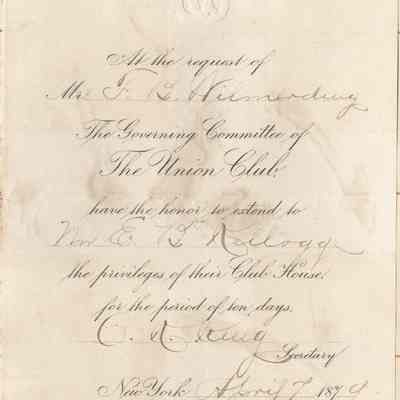 At the request of
Mr. T. B. Wismerding
The Governing Committee of
The Union Club:
have the honor to extend to
E. B. Kellogg
the privileges of their Club House:
for the period of ten days.
King
Secretary
New York April 7 1879.